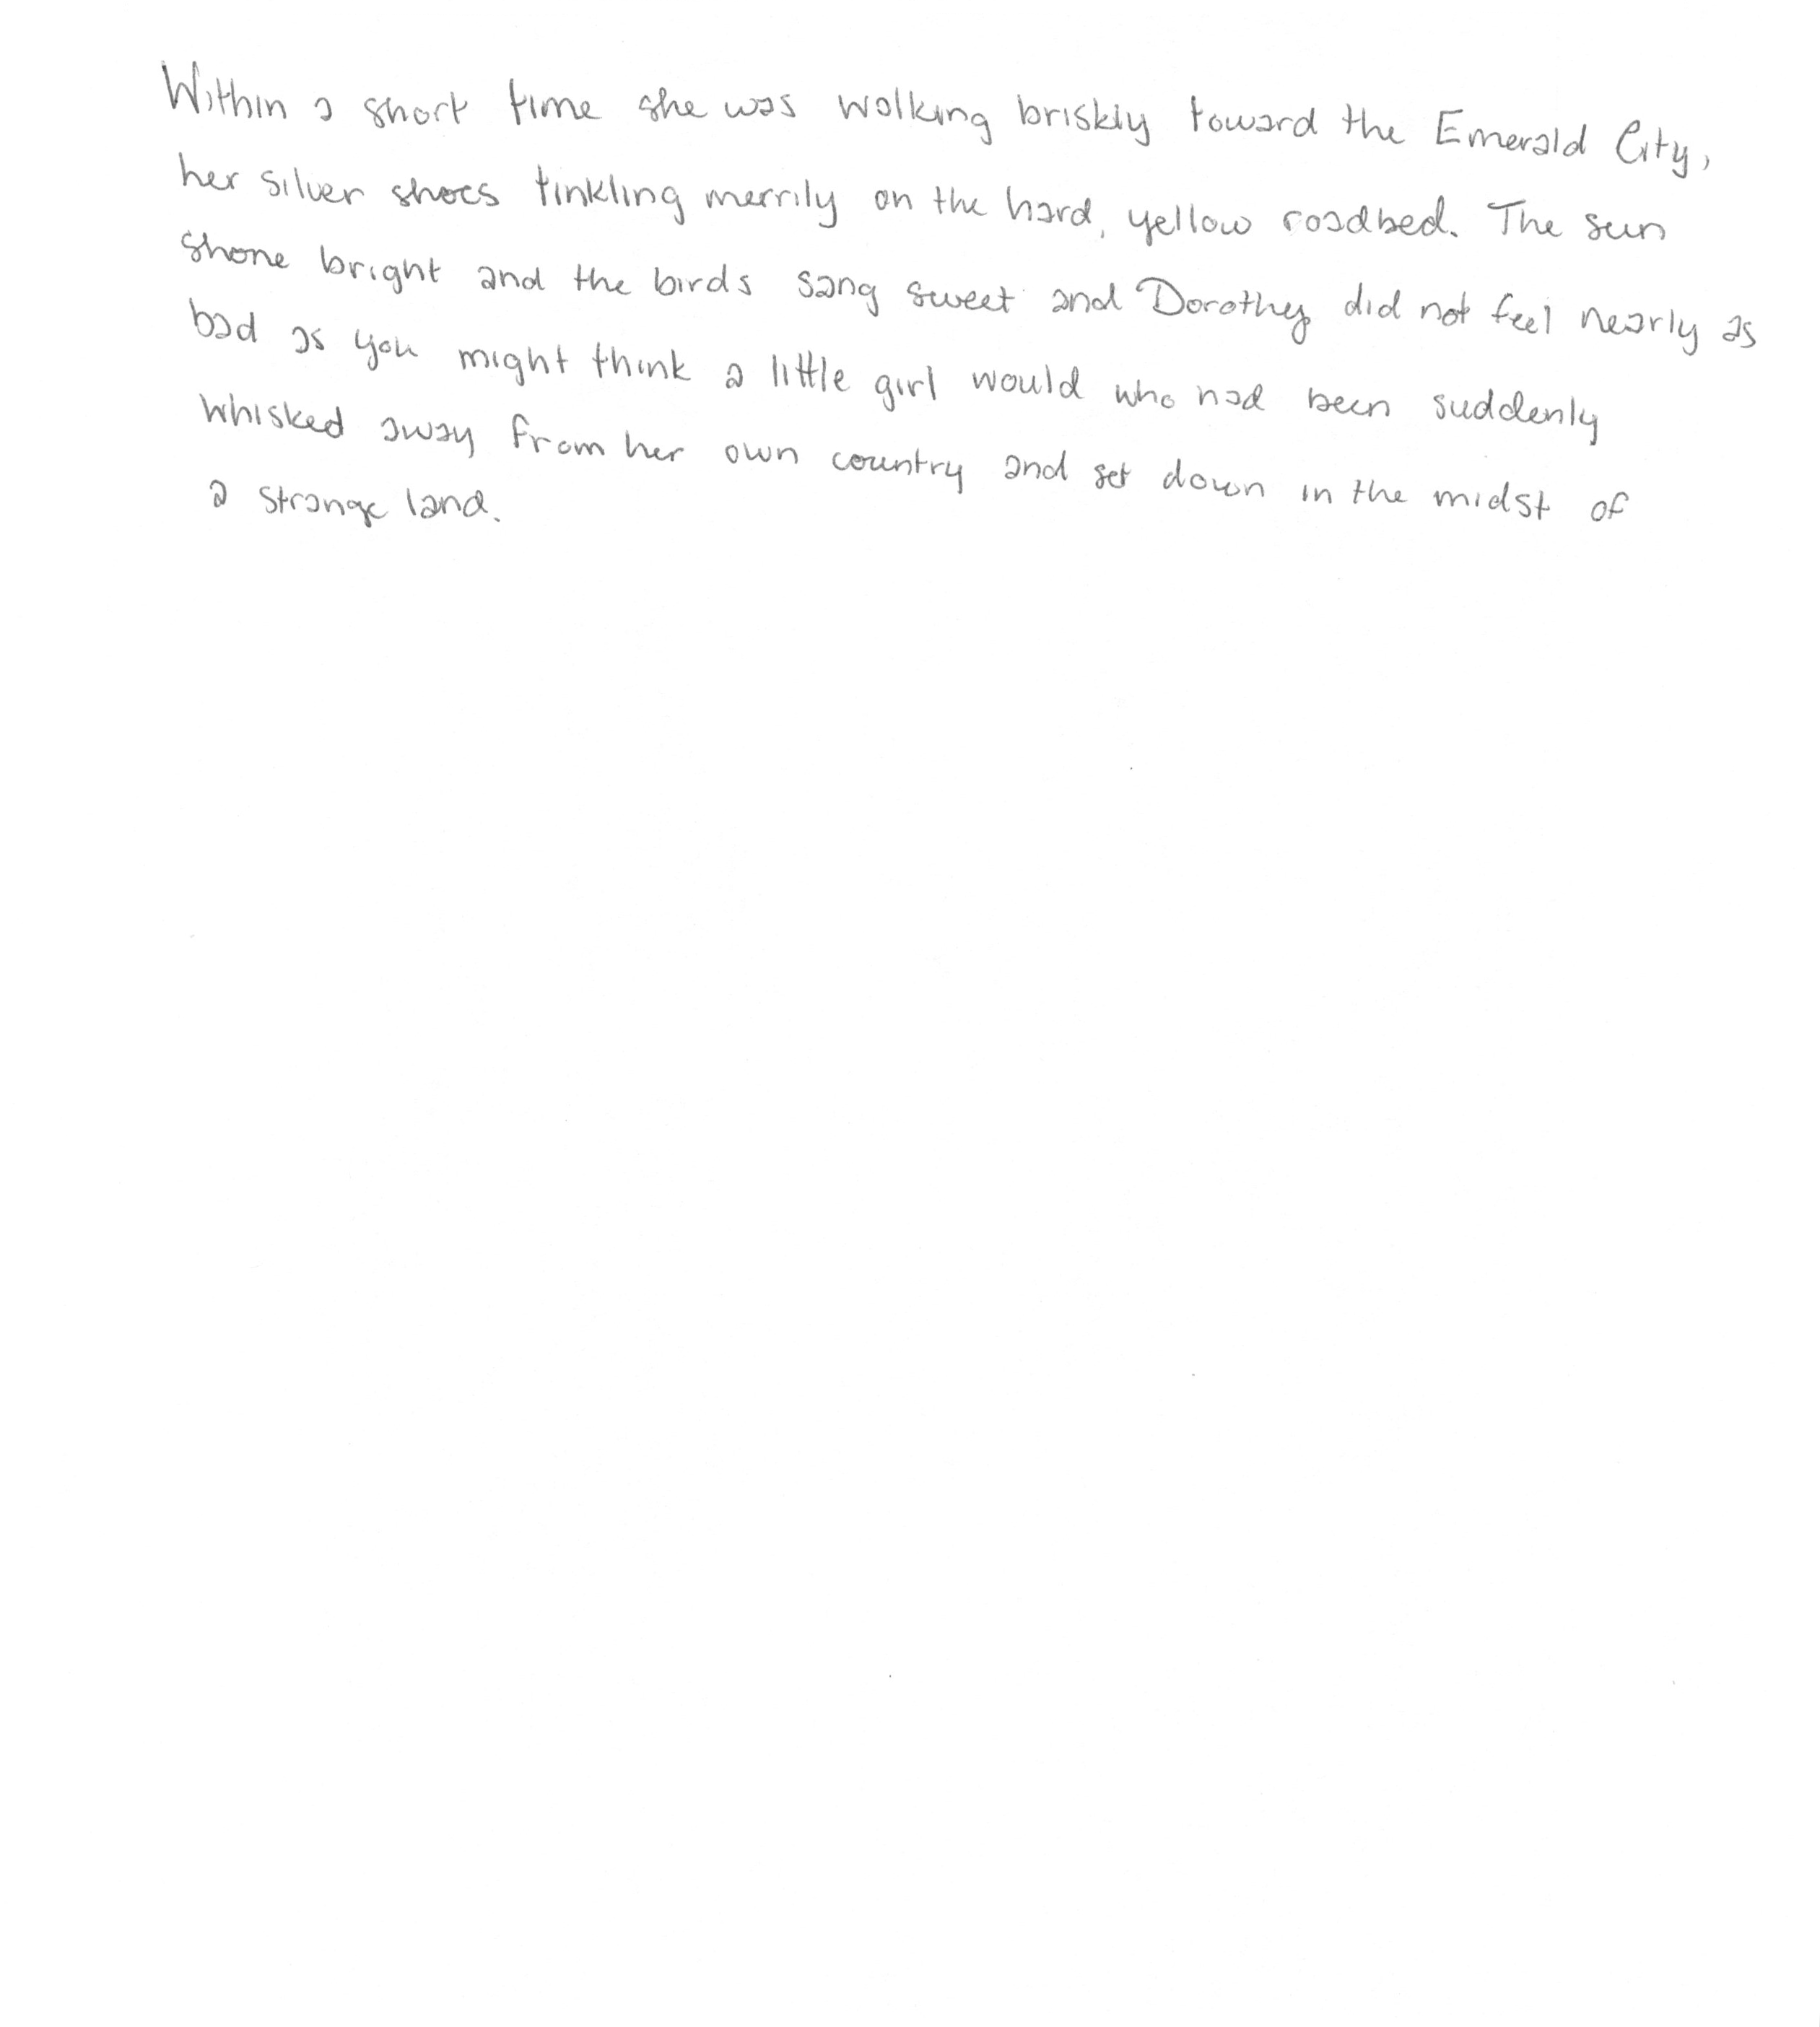 Within a short time she was walking briskly toward the Emerald City,
her silver shoes tinkling merrily on the hard, yellow roadbed. The sun
shone bright and the birds sang sweet and Dorothy did not feel nearly as
bad as you might think a little girl would who had been suddenly
whisked away from her own country and set down in the midst of
a strange land.